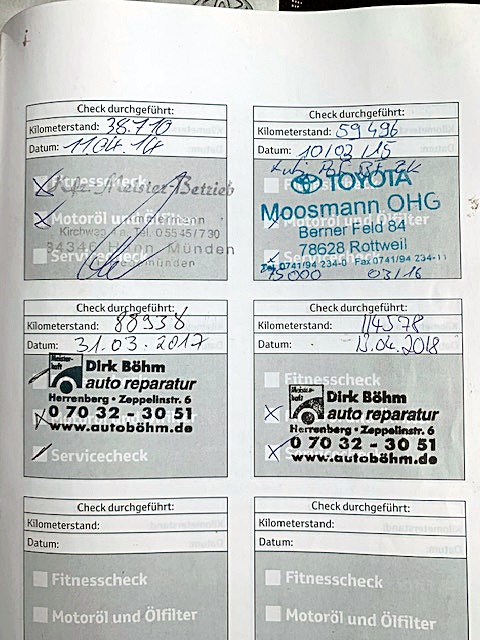 Check durchgeführt:
Kilometerstand: 38.710
Datum: 11.04.14
Fitnesscheck
Kfz.-Meister-Betrieb
Motoröl und Ölfilter
Kirchweg 4 a, Tel. 05545/730
34346 Hann. Münden
Servicecheck
Check durchgeführt:
Kilometerstand: 59496
Datum: 10/03/15
TOYOTA
Moosmann OHG
Berner Feld 84
78628 Rottweil
Tel. 0741/94 234-0 Fax 0741/94 234-11
75000 03/16
Check durchgeführt:
Kilometerstand: 88938
Datum: 31.03.2017
Meister-
haft
Dirk Böhm
auto reparatur
Herrenberg • Zeppelinstr. 6
0 70 32 - 30 51
www.autoböhm.de
Servicecheck
Check durchgeführt:
Kilometerstand: 114378
Datum: 13.04.2018
Fitnesscheck
Meister-
haft
Dirk Böhm
auto reparatur
Herrenberg • Zeppelinstr. 6
0 70 32 - 30 51
www.autoböhm.de
Check durchgeführt:
Kilometerstand:
Datum:
Fitnesscheck
Motoröl und Ölfilter
Check durchgeführt:
Kilometerstand:
Datum:
Fitnesscheck
Motoröl und Ölfilter